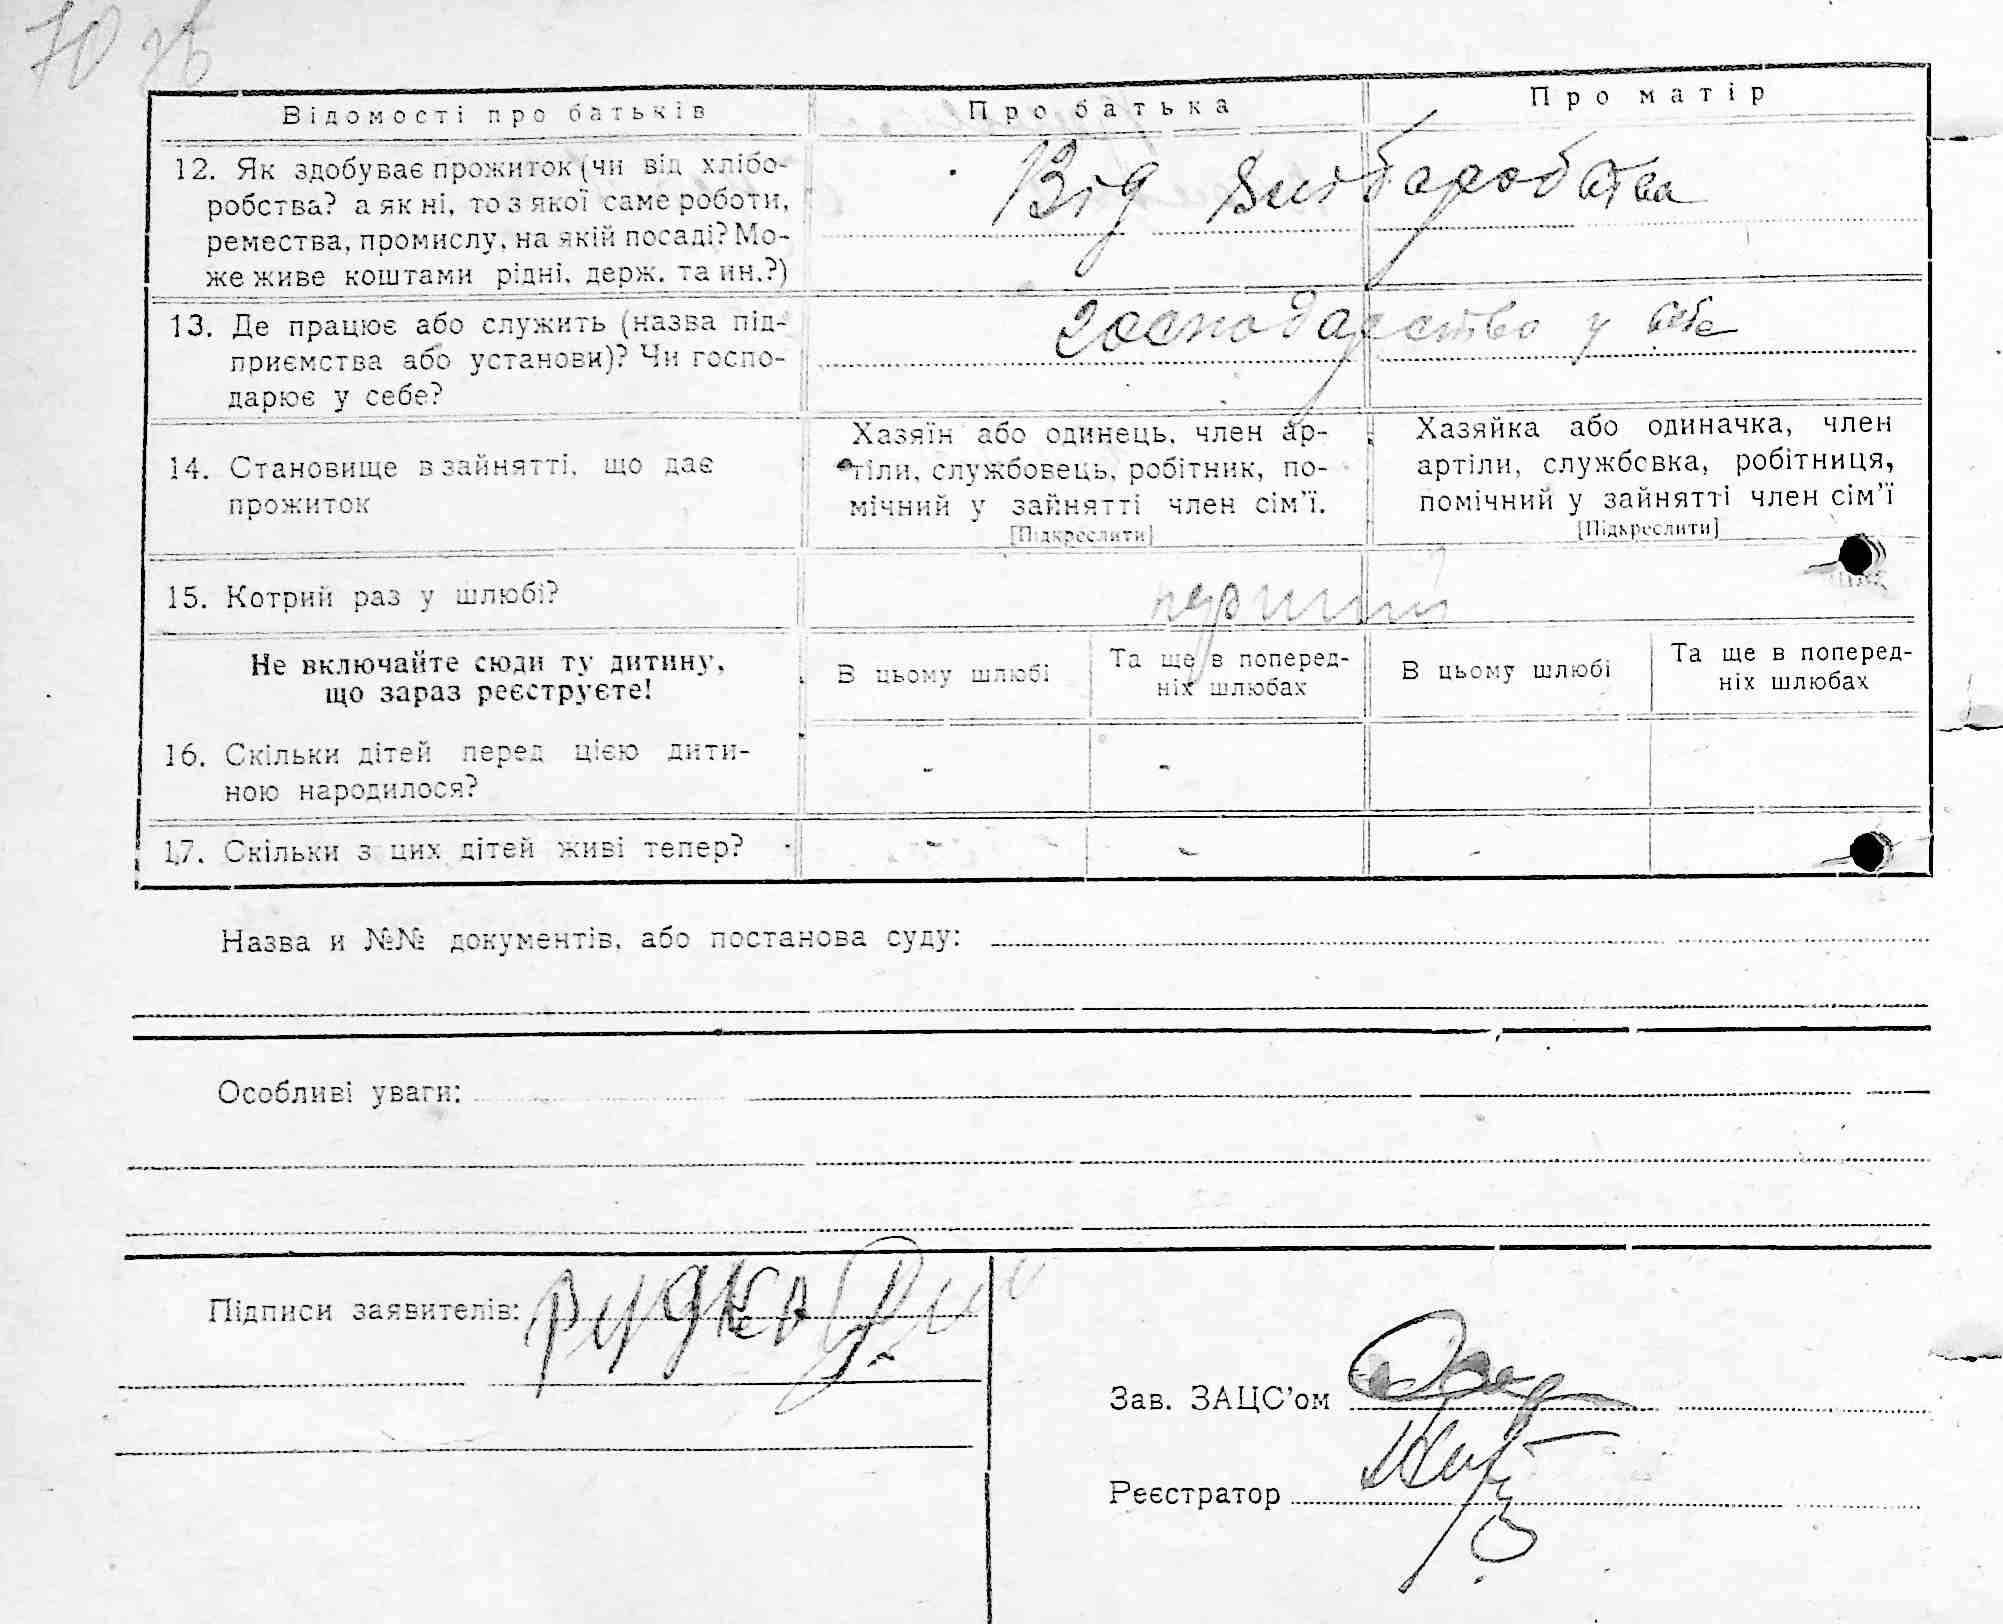 70 зв
Відомості про батьків
Про батька
Про матір
12. Як здобуває прожиток (чи від хлібо-
робства? а як ні, то з якої саме роботи,
ремества, промислу, на якій посаді? Мо-
же живе коштами рідні, держ. та ин.?)
Від хліборобства
13. Де працює або служить (назва під-
приємства або установи)? Чи госпо-
дарює у себе?
господарство у себе
14. Становище в зайнятті, що дає
прожиток
Хазяїн або одинець, член ар-
тіли, службовець, робітник, по-
мічний у зайнятті член сім’ї.
[Підкреслити]
Хазяйка або одиначка, член
артіли, службовка, робітниця,
помічний у зайнятті член сім’ї
[Підкреслити]
15. Котрий раз у шлюбі?
перший
Не включайте сюди ту дитину,
що зараз реєструєте!
В цьому шлюбі
Та ще в поперед-
ніх шлюбах
В цьому шлюбі
Та ще в поперед-
ніх шлюбах
16. Скільки дітей перед цією дити-
ною народилося?
- -
17. Скільки з цих дітей живі тепер?
- - -
Назва и №№ документів, або постанова суду:
Особливі уваги:
Підписи заявителів:
Зав. ЗАЦС’ом
Реєстратор